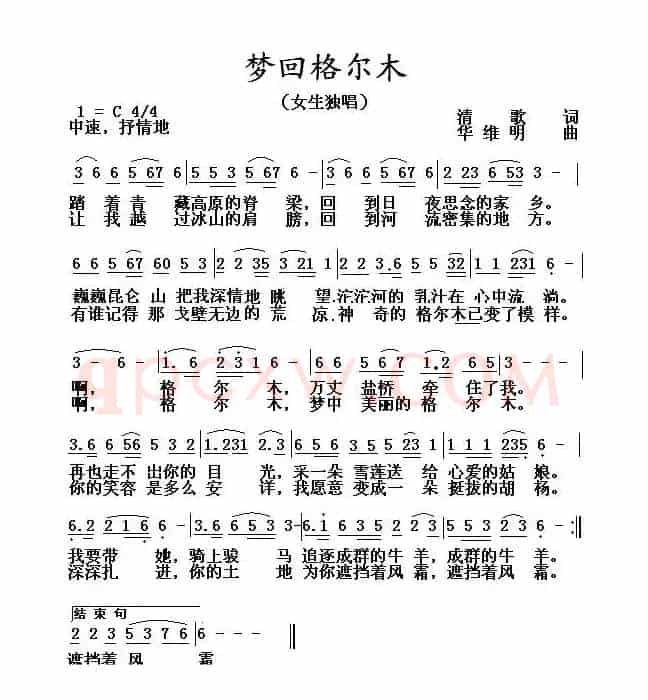 梦回格尔木
（女生独唱）
1 = C 4/4
中速，抒情地
清 歌 词
华 维 明 曲
3 6 6 5 67 6 | 5 5 3 5 67 6 - | 6 6 6 5 3 2 | 2 23 6 53 3 - |
踏 着 青 藏高原的脊 梁，回 到日 夜思念的家 乡。
让 我 越 过冰山的肩 膀，回 到河 流密集的地 方。
6 6 5 67 6 | 5 5 5 1 6 5 3 | 2 2 35 3 21 | 2 2 3.6 5 5 32 | 1 1 231 6 - |
巍巍昆仑 山 把我深情地 眺 望.沱沱河的 乳汁在 心中流 淌。
有谁记得 那 戈壁无边的 荒 凉.神 奇的 格尔木已变了模 样。
3 - 6 - | 1. 6 2 3 1 6 - |
啊， 格 尔 木，万丈 盐桥 牵 住了我。
啊， 格 尔 木，梦中 美丽的 格 尔 木。
qpcxw.COM
3.6 6 56 5 3 2 | 1.231 2.3 | 6 5 6 3 5 5 23 | 1 1 235 6 - |
再也走不 出你的 目 光，采一朵 雪莲送 给 心爱的姑 娘。
你的笑容 是多么 安 详，我愿意 变成一 朵 挺拔的胡 杨。
我要带 她，骑上骏 马 追逐成群的牛 羊，成群的牛 羊。
深深扎 进，你的土 地 为你遮挡着风 霜，遮挡着风 霜。
结 束 句
2 2 3 5 3 7 6 | 6 - - - ||
遮挡着 风 霜